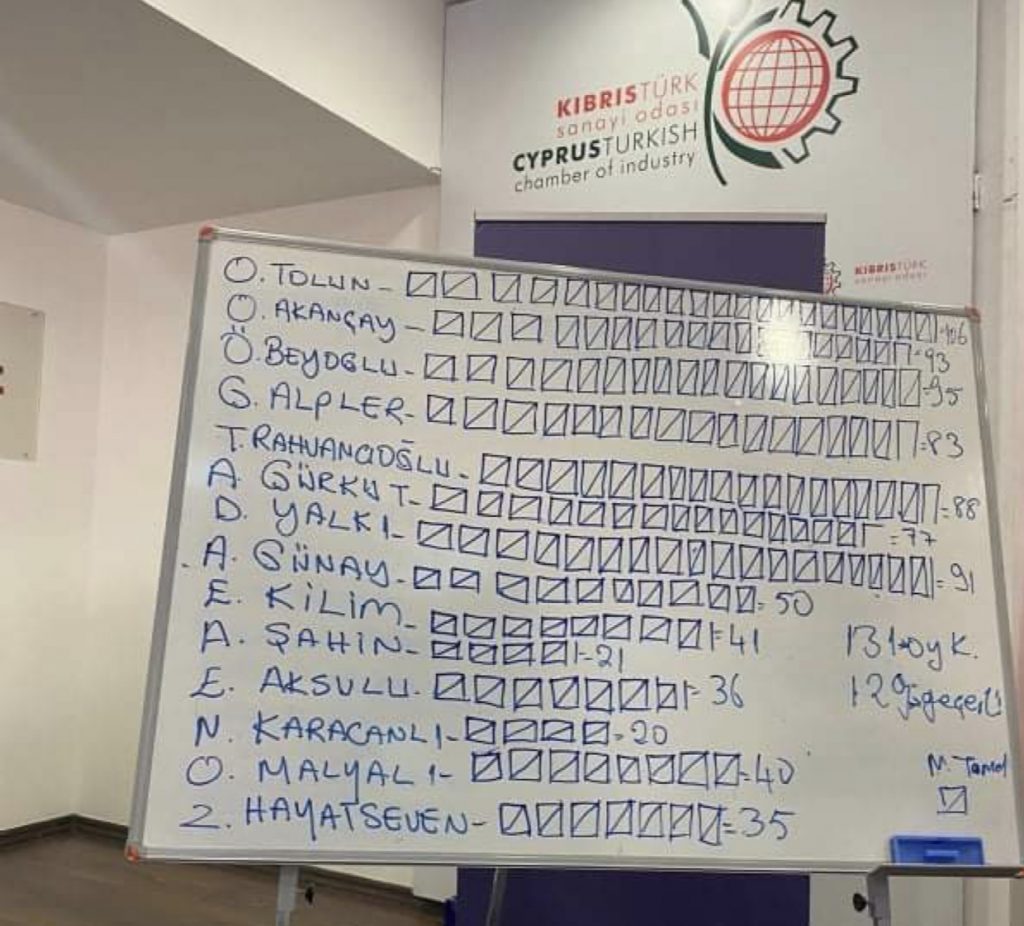 KIBRISTÜRK
sanayi odası
CYPRUSTURKISH
chamber of industry
KIBRISTÜRK
sanayi odası
O. TOLUN - =106
O. AKANÇAY - =93
Ö. BEYOĞLU - =95
G. ALPLER - =83
T. RAHVANCIOĞLU - =88
A. GÜRKUT - =77
D. YALKI - =91
A. GÜNAY - = 50
E. KİLİM - = 41
A. ŞAHİN - = 21
E. AKSULU - = 36
N. KARACANLI - = 20
O. MALYALI - = 40
Z. HAYATSEVEN - = 35
131 oy K.
12
M. Tamel